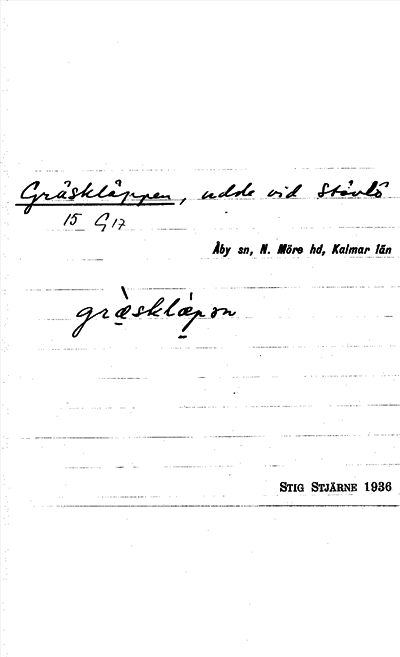 Gräskläppen, udde vid Stävlö
15 G 17
Åby sn, N. Möre hd, Kalmar län
græ̀sklæ̀pən
STIG STJÄRNE 1936